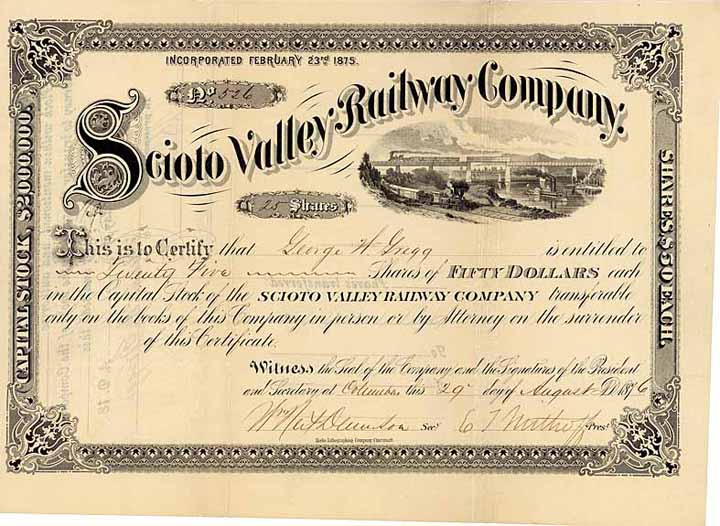 INCORPORATED FEBRUARY 23rd 1875.
No 526
Scioto Valley Railway Company.
25 Shares
CAPITAL STOCK, $2,000,000.
SHARES $50 EACH.
This is to Certify that George W Gregg is entitled to
Twenty Five shares of FIFTY DOLLARS each
in the Capital Stock of the SCIOTO VALLEY RAILWAY COMPANY transferable
only on the books of this Company in person or by Attorney on the surrender
of this Certificate.
Witness the Seal of the Company and the Signatures of the President
and Secretary at Columbus this 29 day of August AD 1876
Secy. Prest.